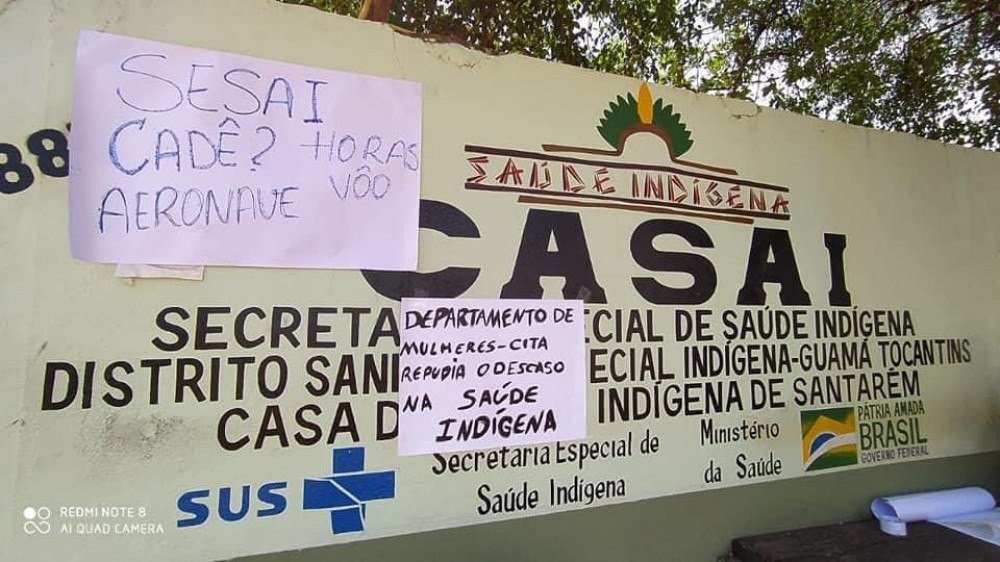 SESAI
CADÊ? HORAS
AERONAVE VÔO
88
SAÚDE INDÍGENA
CASAI
SECRETA CIAL DE SAÚDE INDÍGENA
DISTRITO SANI ECIAL INDÍGENA-GUAMÁ TOCANTINS
CASA D INDÍGENA DE SANTARÉM
DEPARTAMENTO DE
MULHERES-CITA
REPUDIA O DESCASO
NA SAÚDE
INDÍGENA
SUS
Secretaria Especial de
Saúde Indígena
Ministério
da Saúde
PÁTRIA AMADA
BRASIL
GOVERNO FEDERAL
REDMI NOTE 8
AI QUAD CAMERA